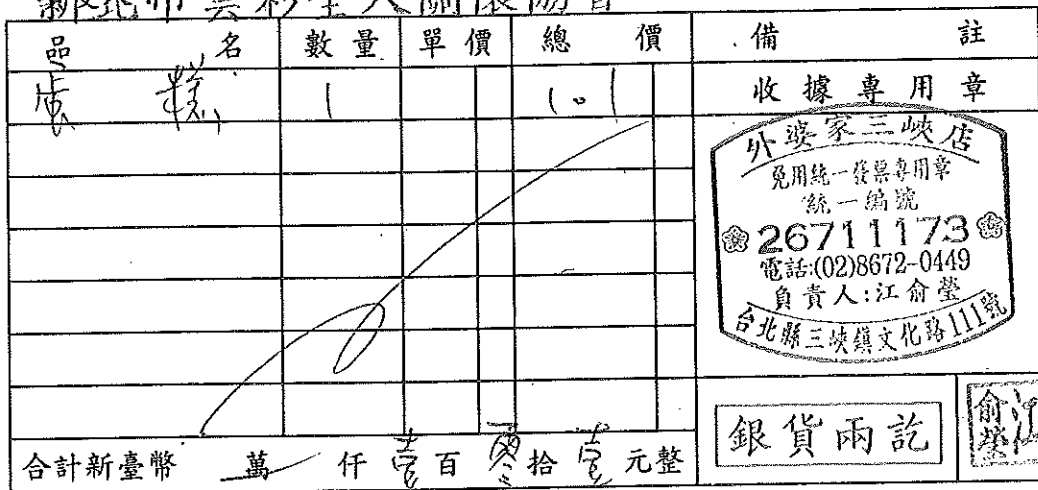 品名 數量 單價 總價 備註
糕 1 101 收據專用章
外婆家三峽店
免用統一發票專用章
統一編號
26711173
電話:(02)8672-0449
負責人:江俞瑩
台北縣三峽鎮文化路111號
銀貨兩訖
江俞瑩
合計新臺幣 萬 仟 壹 百 零 拾 壹 元整